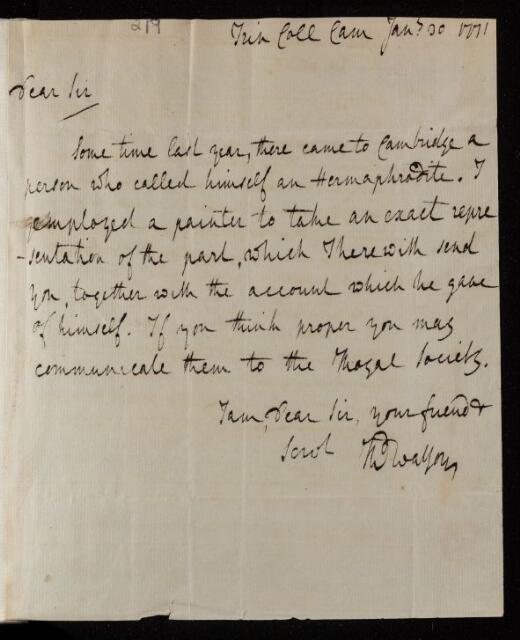 219
Trin Coll Cam Jan.y 30 1771
Dear Sir
Some time last year, there came to Cambridge a
person who called himself an Hermaphrodite. I
employed a painter to take an exact repre
-sentation of the part, which I herewith send
you, together with the account which he gave
of himself. If you think proper you may
communicate them to the Royal Society.
I am, Dear Sir, your friend &
Servt